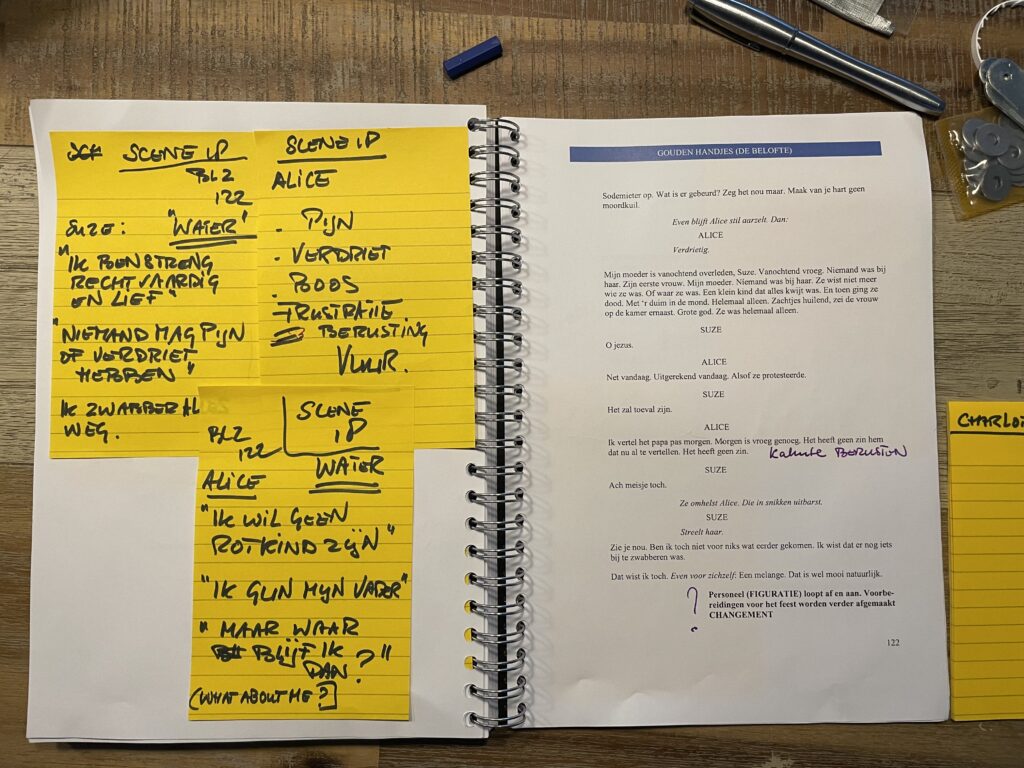 SCENE 1P
BLZ
122
SUZE: "WATER"
"IK BEN STRENG
RECHTVAARDIG
EN LIEF"
"NIEMAND MAG PIJN
OF VERDRIET
HEBBEN"
IK ZWABBER AL
WEG.
SCENE 1P
ALICE
. PIJN
. VERDRIET
. BOOS
FRUSTRATIE
BERUSTING
VUUR.
SCENE
1P
BLZ
122
WATER
ALICE
"IK WIL GEEN
ROTKIND ZIJN"
"IK GUN MIJN VADER"
"MAAR WAAR
BLIJF IK
DAN?"
(WHAT ABOUT ME?)
GOUDEN HANDJES (DE BELOFTE)
Sodemieter op. Wat is er gebeurd? Zeg het nou maar. Maak van je hart geen
moordkuil.
Even blijft Alice stil aarzelt. Dan:
ALICE
Verdrietig.
Mijn moeder is vanochtend overleden, Suze. Vanochtend vroeg. Niemand was bij
haar. Zijn eerste vrouw. Mijn moeder. Niemand was bij haar. Ze wist niet meer
wie ze was. Of waar ze was. Een klein kind dat alles kwijt was. En toen ging ze
dood. Met 'r duim in de mond. Helemaal alleen. Zachtjes huilend, zei de vrouw
op de kamer ernaast. Grote god. Ze was helemaal alleen.
SUZE
O jezus.
ALICE
Net vandaag. Uitgerekend vandaag. Alsof ze protesteerde.
SUZE
Het zal toeval zijn.
ALICE
Ik vertel het papa pas morgen. Morgen is vroeg genoeg. Het heeft geen zin hem
dat nu al te vertellen. Het heeft geen zin. Kalmte BERUSTEN
SUZE
Ach meisje toch.
Ze omhelst Alice. Die in snikken uitbarst.
SUZE
Streelt haar.
Zie je nou. Ben ik toch niet voor niks wat eerder gekomen. Ik wist dat er nog iets
bij te zwabberen was.
Dat wist ik toch. Even voor zichzelf: Een melange. Dat is wel mooi natuurlijk.
? Personeel (FIGURATIE) loopt af en aan. Voorbe-
reidingen voor het feest worden verder afgemaakt
CHANGEMENT
122
CHARLO